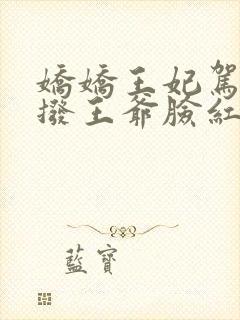 嬌嬌王妃駕
撥王爺臉紅
藍寶